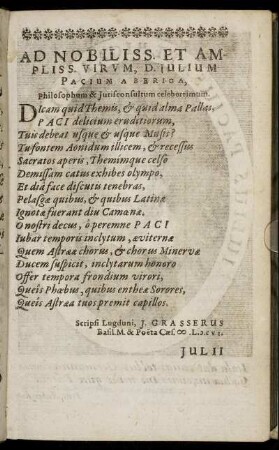 AD NOBILISS. ET AM-
PLISS. VIRVM, D. IULIUM
PACIUM A BERIGA,
philosophum & Jurisconsultum celeberrimum.
Dicam quid Themis, & quid alma Pallas,
PACI delicium eruditiorum,
Tuis debeat usque & usque Musis?
Tu fontem Aonidum illicem, & recessus
Sacratos aperis, Themimque celso
Demissam catus exhibes olympo,
Et diâ face discutis tenebras,
Pelasgæ quibus, & quibus Latinæ
Ignotæ fuerant diu Camœnæ.
O nostri decus, ô perenne PACI
Iubar temporis inclytum, æviternæ
Quem Astrææ chorus, & chorus Minervæ
Ducem suspicit, inclytarum honoro
Offer tempora frondium virori,
Queîs Phœbus, quibus entheæ Sorores,
Queîs Astræa tuos premit capillos.
Scripsi Lugduni, J. GRASSERUS
Basil. M. & Poëta Cæs.
JULII